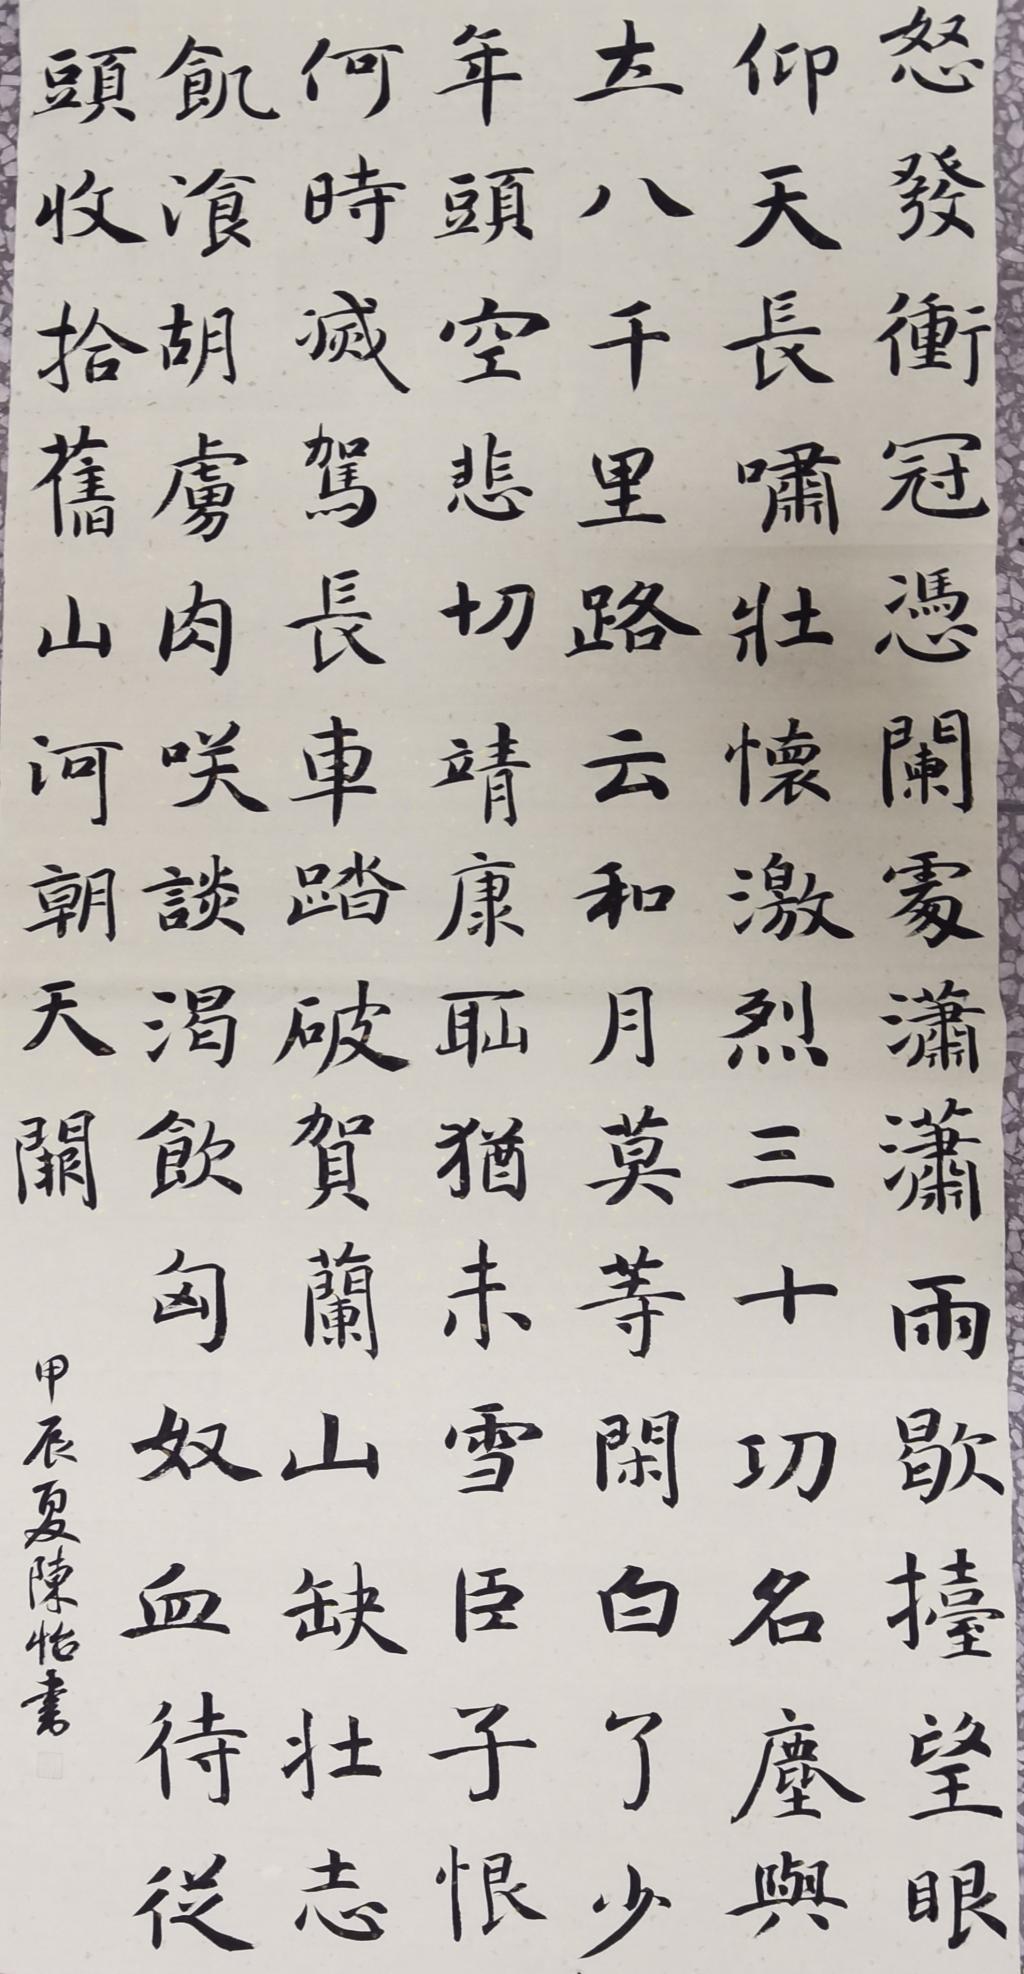 怒發衝冠憑闌處瀟瀟雨歇擡望眼
仰天長嘯壯懷激烈三十功名塵與
土八千里路云和月莫等閑白了少
年頭空悲切靖康恥猶未雪臣子恨
何時滅駕長車踏破賀蘭山缺壯志
飢飡胡虜肉咲談渴飲匈奴血待從
頭收拾舊山河朝天闕
甲辰夏陳怡書